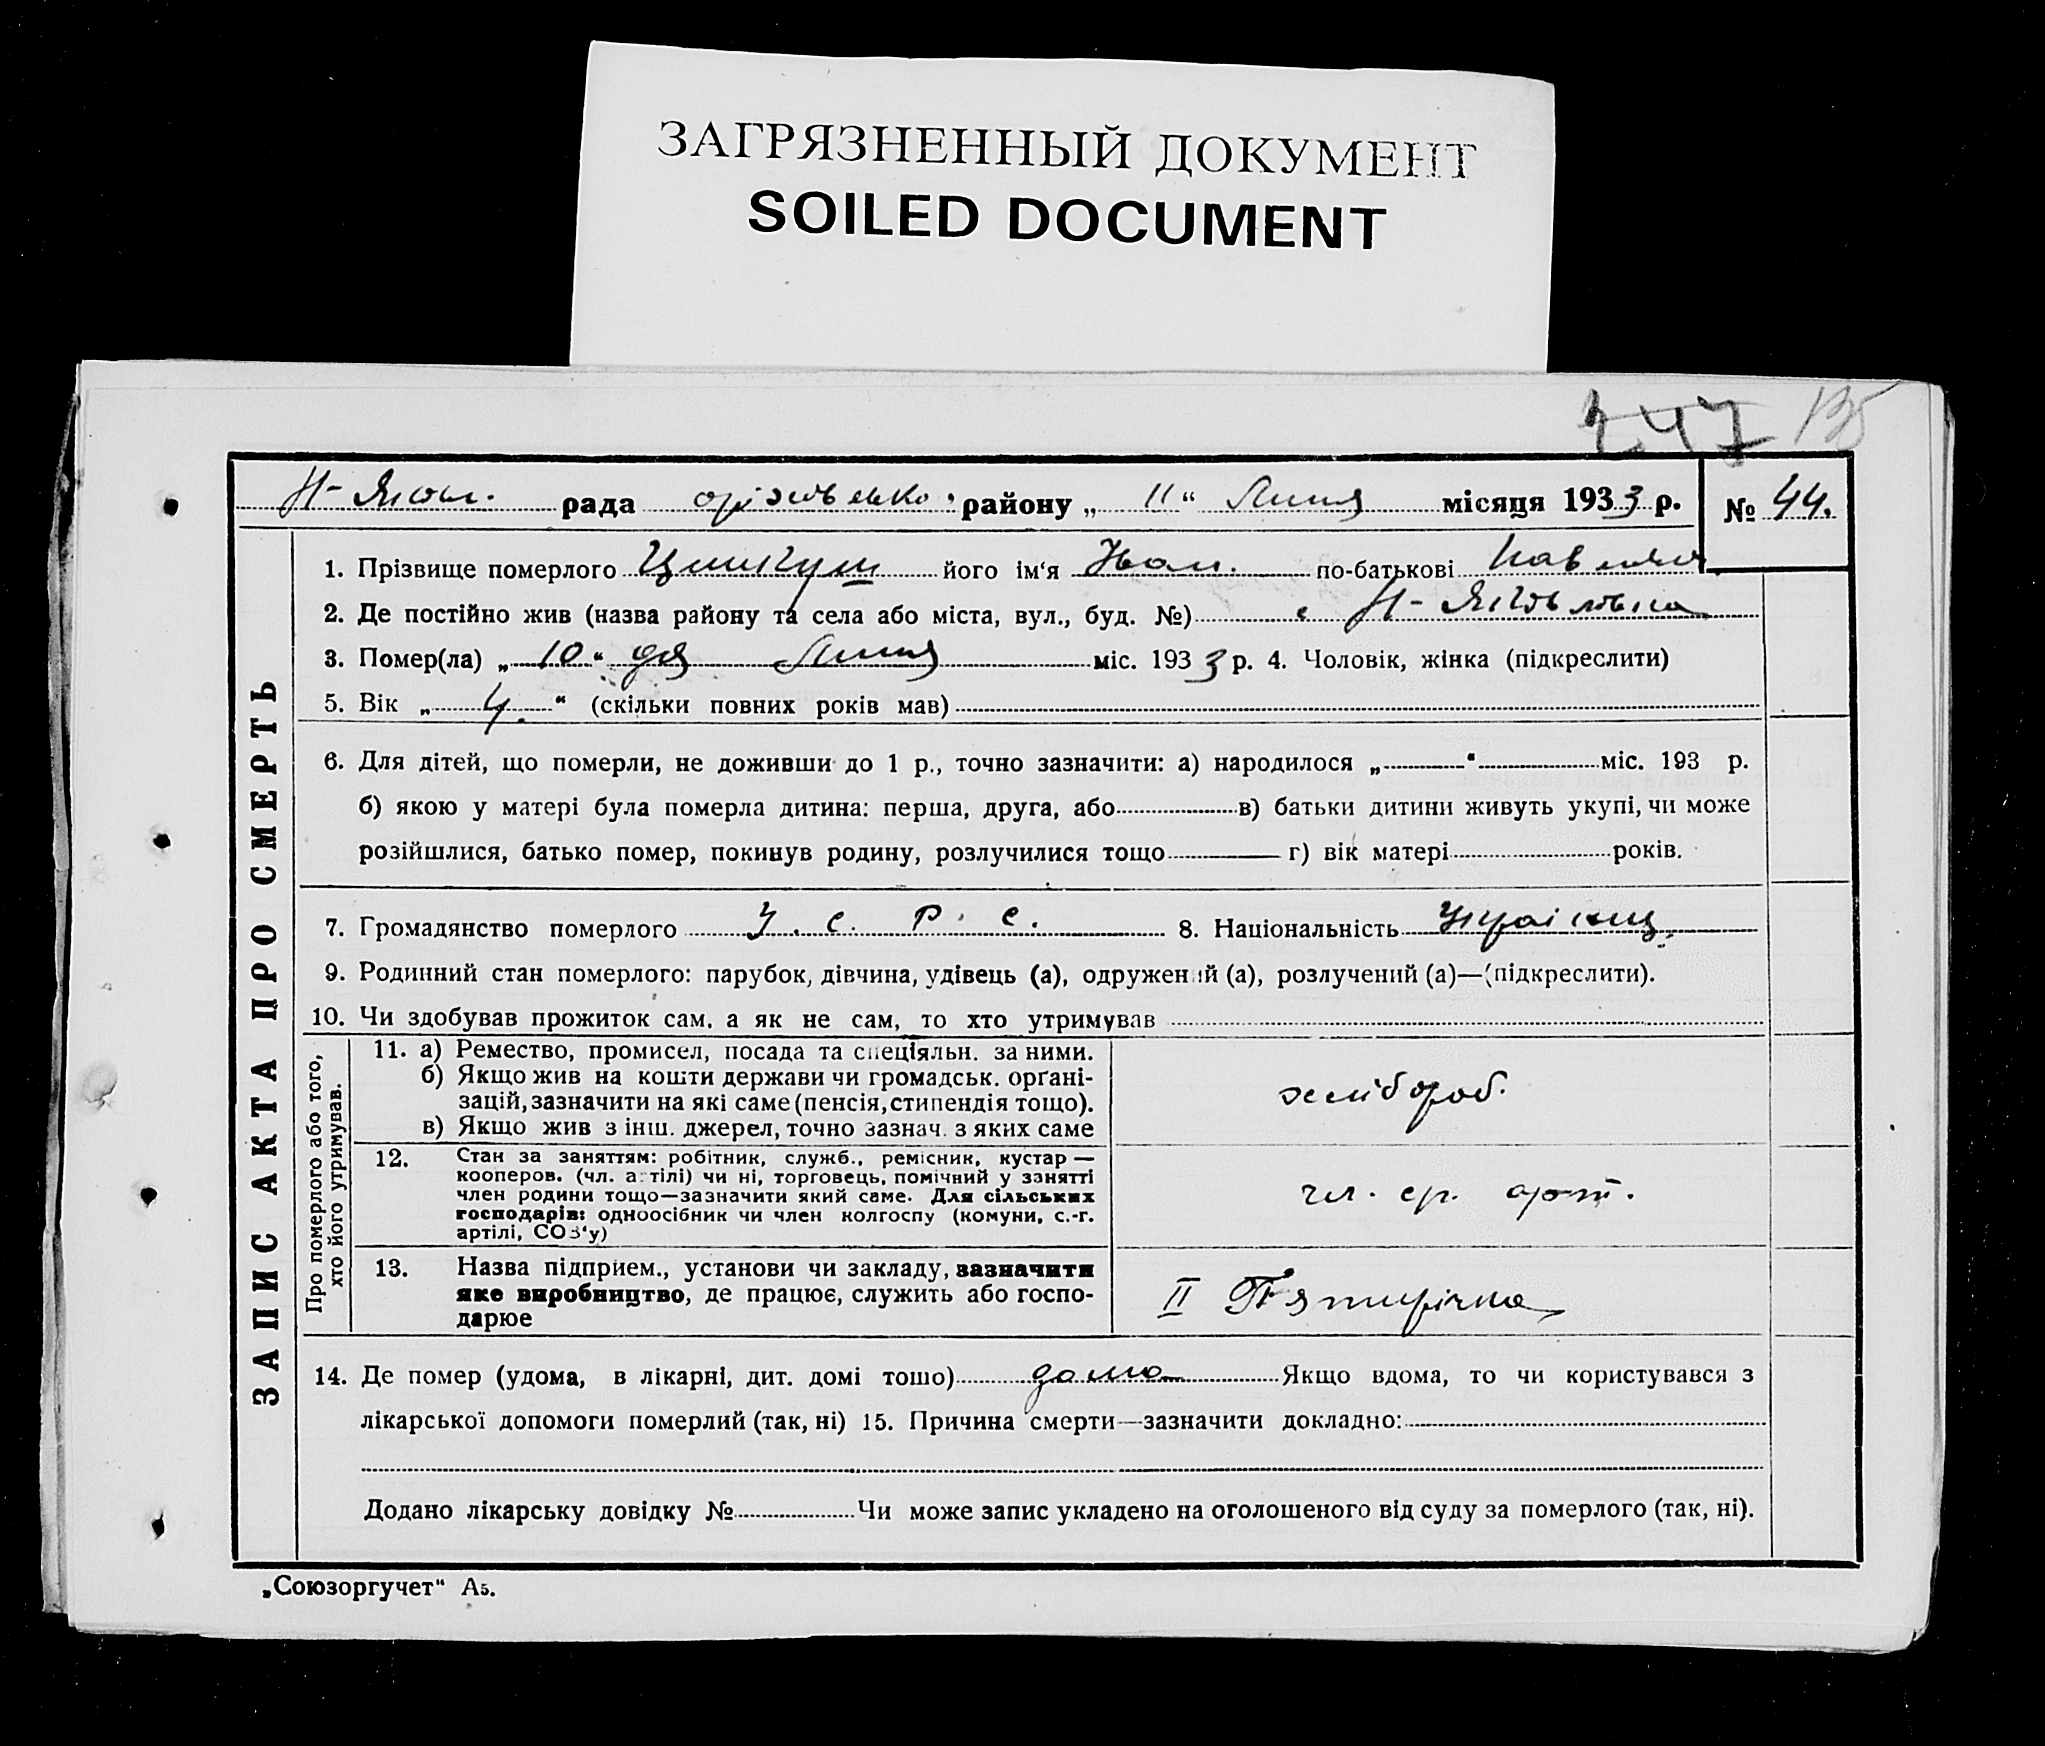 ЗАГРЯЗНЕННЫЙ ДОКУМЕНТ
SOILED DOCUMENT
247
рада район у „ 11 “ Липня місяця 1933 р. № 44.
ЗАПИС АКТА ПРО СМЕРТЬ
1. Прізвище померлого його ім‘я Іван. по-батькові
2. Де постійно жив (назва району та села або міста, вул., буд. №) с Н-Яковлівка
3. Помер(ла) „ 10 “ дня Липня міс. 1933 р. 4. Чоловік, жінка (підкреслити)
5. Вік „ 4. “ (скільки повних років мав)
6. Для дітей, що померли, не доживши до 1 р., точно зазначити: а) народилося „ “ міс. 193 р.
б) якою у матері була померла дитина: перша, друга, або в) батьки дитини живуть укупі, чи може
розійшлися, батько помер, покинув родину, розлучилися тощо г) вік матері років.
7. Громадянство померлого У. С. Р. С. 8. Національність Українц.
9. Родинний стан померлого: парубок, дівчина, удівець (а), одружений (а), розлучений (а)—(підкреслити).
10. Чи здобував прожиток сам, а як не сам, то хто утримував
Про померлого або того,
хто його утримував.
11. а) Ремество, промисел, посада та спеціяльн. за ними.
б) Якщо жив на кошти держави чи громадськ. орґані-
зацій, зазначити на які саме (пенсія, стипендія тощо).
в) Якщо жив з інш. джерел, точно зазнач. з яких саме
хлібороб.
12. Стан за заняттям: робітник, служб., ремісник, кустар —
кооперов. (чл. артілі) чи ні, торговець, помічний у занятті
член родини тощо—зазначити який саме. Для сільських
господарів: одноосібник чи член колгоспу (комуни, с.-г.
артілі, СОЗ‘у)
чл. ср. арт.
13. Назва підприєм., установи чи закладу, зазначити
яке виробництво, де працює, служить або госпо-
дарює
II П'ятирічка
14. Де помер (удома, в лікарні, дит. домі тошо) дома Якщо вдома, то чи користувався з
лікарської допомоги померлий (так, ні) 15. Причина смерти—зазначити докладно:
Додано лікарську довідку № Чи може запис укладено на оголошеного від суду за померлого (так, ні).
„Союзоргучет“ А5.